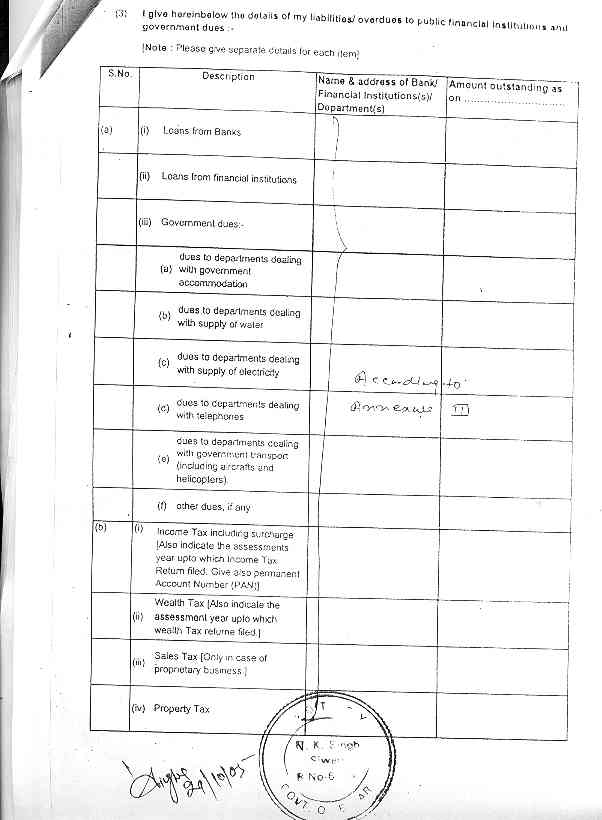 (3) I give hereinbelow the details of my liabilities/ overdues to public financial institutions and
government dues :-
[Note : Please give separate details for each item]
S.No. Description Name & address of Bank/ Amount outstanding as
Financial Institutions(s)/ on ..............................
Department(s)
(a) (i) Loans from Banks
(ii) Loans from financial institutions
(iii) Government dues:-
dues to departments dealing
(a) with government
accommodation
(b) dues to departments dealing
with supply of water
(c) dues to departments dealing
with supply of electricity
According to
(c) dues to departments dealing
with telephones
Annexure III
dues to departments dealing
(e) with government transport
(including aircrafts and
helicopters)
(f) other dues, if any
(b) (i) Income Tax including surcharge
[Also indicate the assessments
year upto which Income Tax
Return filed. Give also permanent
Account Number (PAN)]
Wealth Tax [Also indicate the
(ii) assessment year upto which
wealth Tax returne filed.]
(iii) Sales Tax [Only in case of
proprietary business.]
(iv) Property Tax
N. K. Singh
Siwan
R No-6
GOVT. O F AR
24/10/05